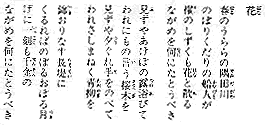 花
春のうららの隅田川
のぼりくだりの船人が
櫂のしずくも花と散る
ながめを何にたとうべき
見ずやあけぼの露浴びて
われにもの言う桜木を
見ずや夕ぐれ手をのべて
われさしまねく青柳を
錦おりなす長堤に
くるればのぼるおぼろ月
げに一刻も千金の
ながめを何にたとうべき